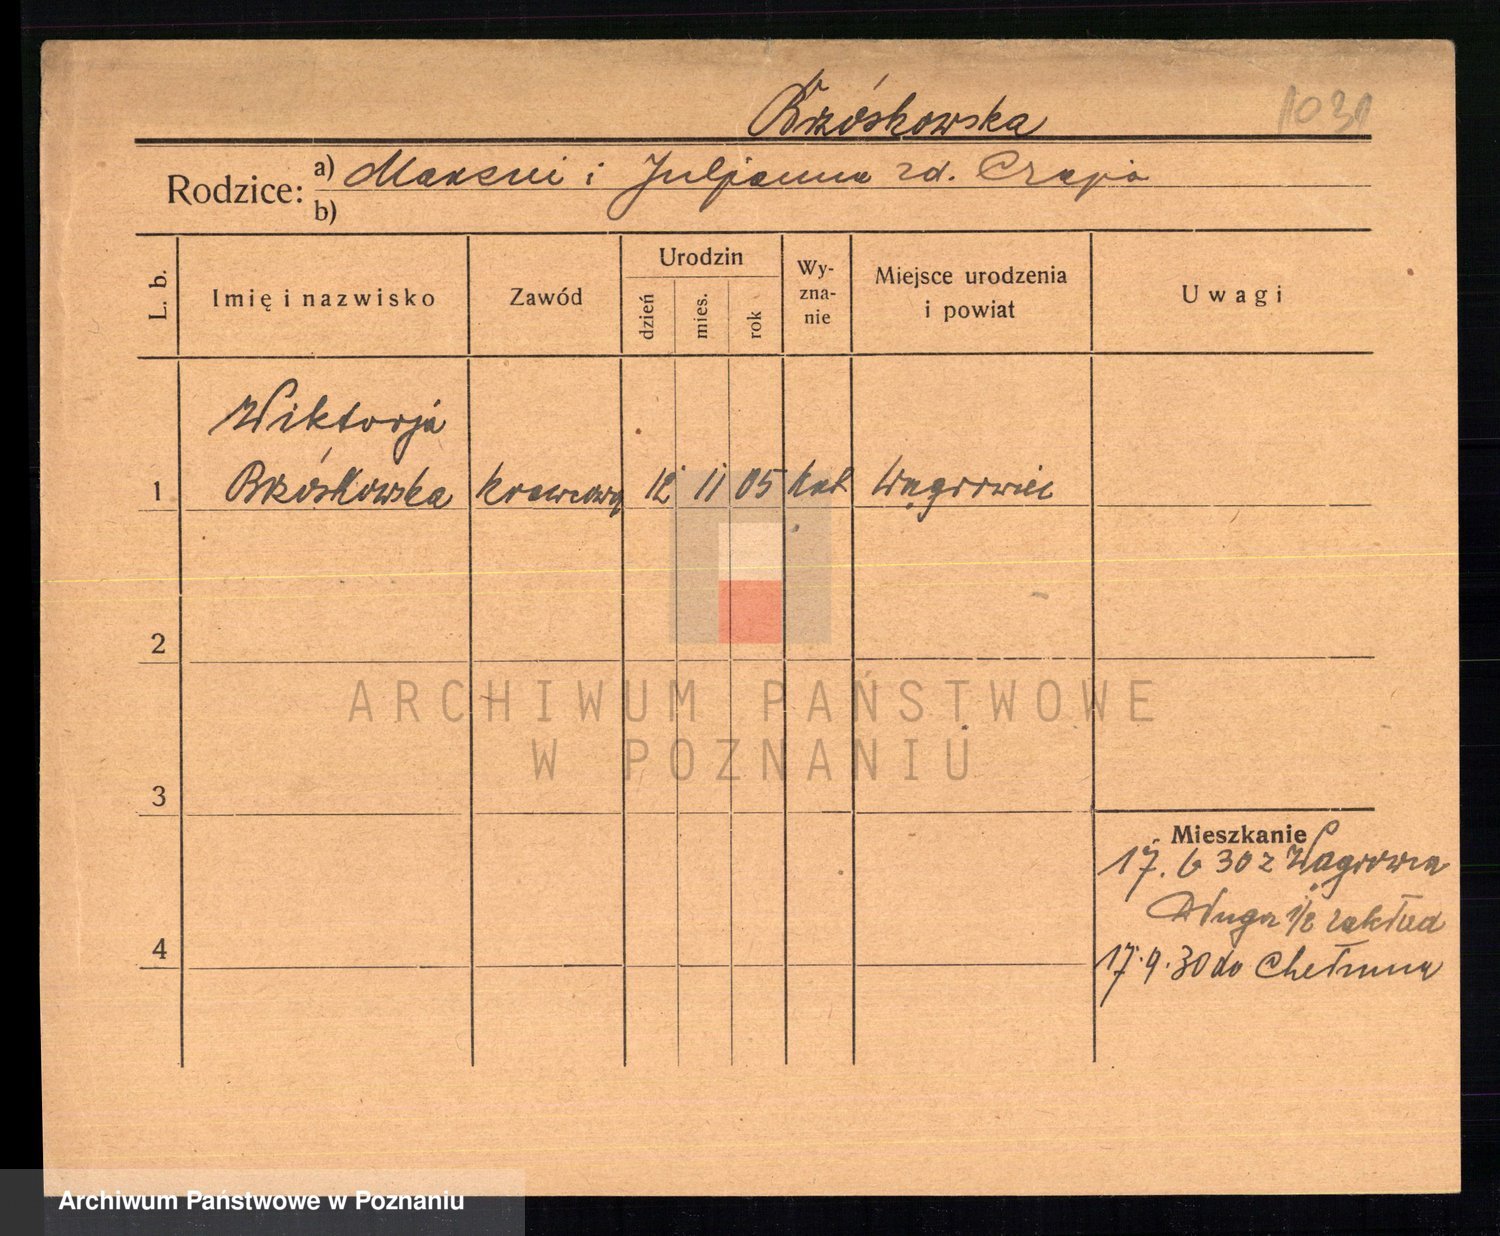 Brzóskowska
1031
Rodzice:
a) i Juljanna zd. Czapa
b)
L. b.
Imię i nazwisko
Zawód
Urodzin
dzień
mies.
rok
Wy-
zna-
nie
Miejsce urodzenia
i powiat
Uwagi
Wiktorja
1 Brzóskowska krawcowa 12 11 05 kat Wągrowiec
2
3
4
Mieszkanie
17. 6 30 z Wągrowca
Długa 1/2 zakład
17.9.30 do Chełmna
ARCHIWUM PAŃSTWOWE
W POZNANIU
Archiwum Państwowe w Poznaniu